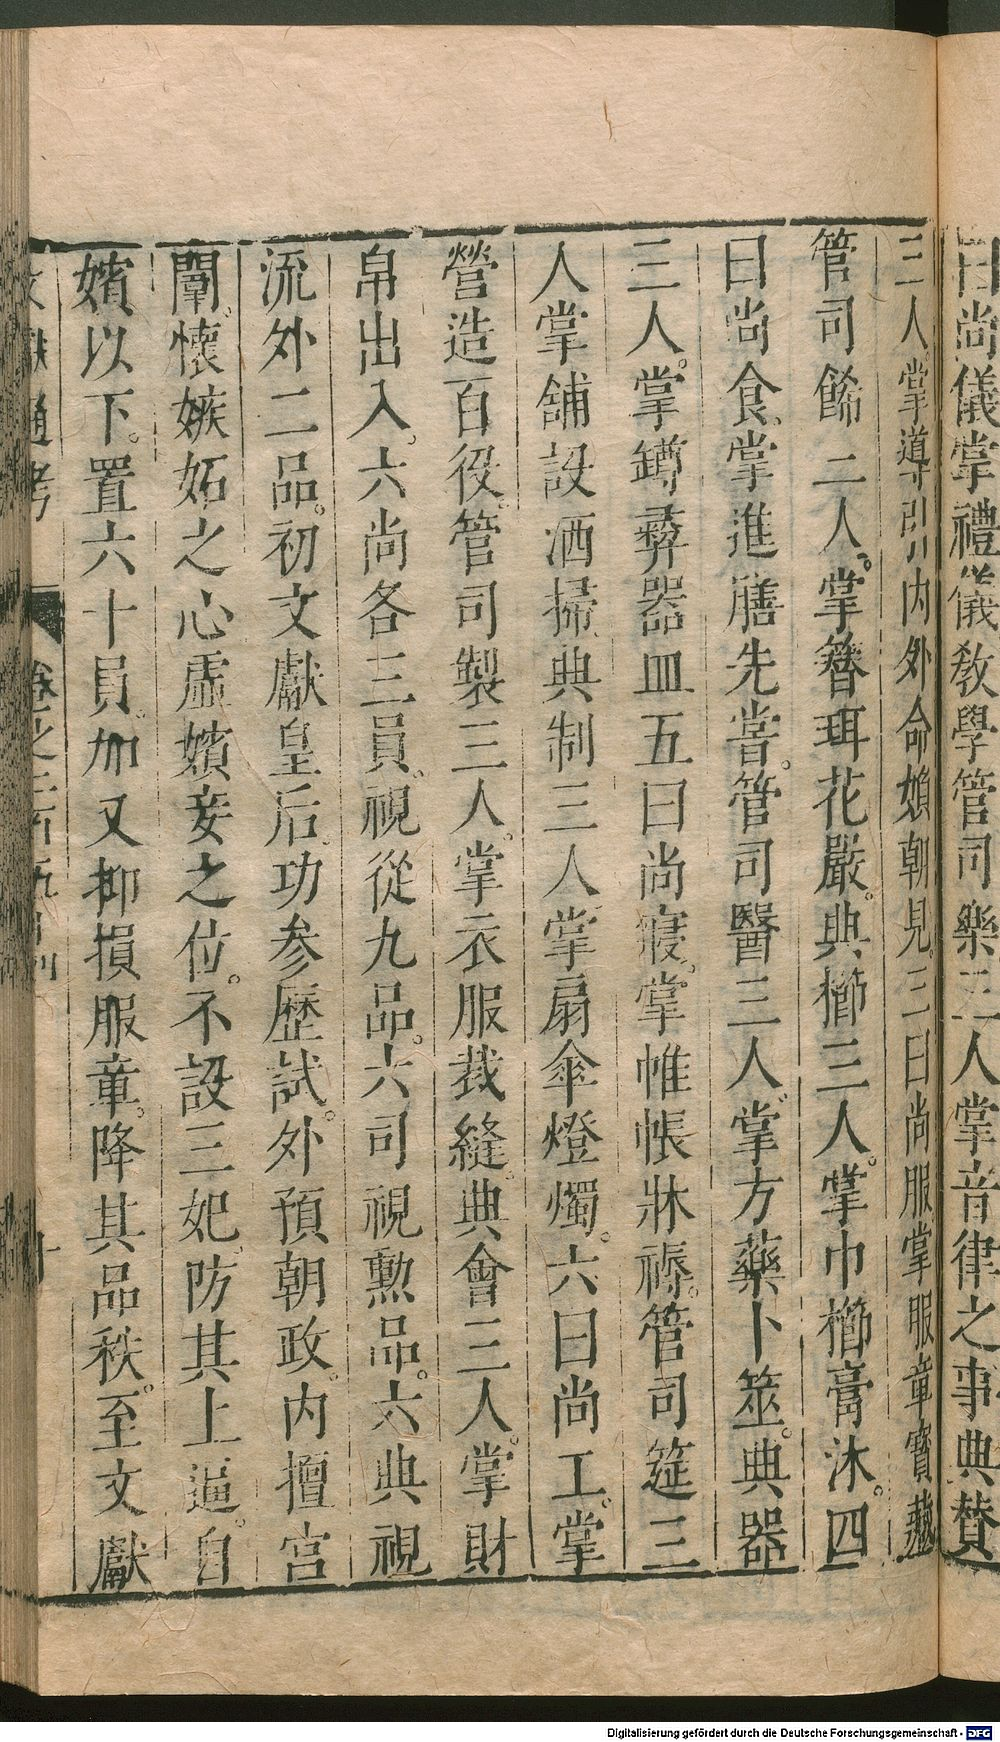 曰尚儀掌禮儀教學管司樂三人掌音律之事典贊
三人。掌導引内外命婦朝見。三曰尚服掌服章寶藏
管司餙二人。掌簪珥花嚴。典櫛三人。掌巾櫛膏沐。四
曰尚食。掌進膳先嘗。管司醫三人。掌方藥卜筮。典器
三人。掌罇彛器皿五曰尚寢。掌帷帳牀褥。管司筵三
人掌舖設洒掃。典制三人掌扇傘燈燭。六曰尚工。掌
營造百役。管司製三人。掌衣服裁縫。典會三人。掌財
帛出入。六尚各三員。視從九品。六司視勲品。六典視
流外二品。初文獻皇后。功参歷試。外預朝政。内擅宮
闈。懷嫉妬之心虛嬪妾之位。不設三妃。防其上逼。自
嬪以下。置六十員。加又抑損服章。降其品秩。至文獻
文獻通考
十
Digitalisierung gefördert durch die Deutsche Forschungsgemeinschaft - DFG